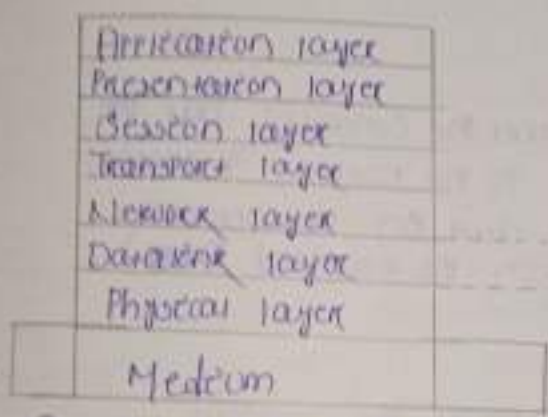 Application layer
Presentation layer
Session layer
Transport layer
Network layer
Datalink layer
Physical layer
Medium